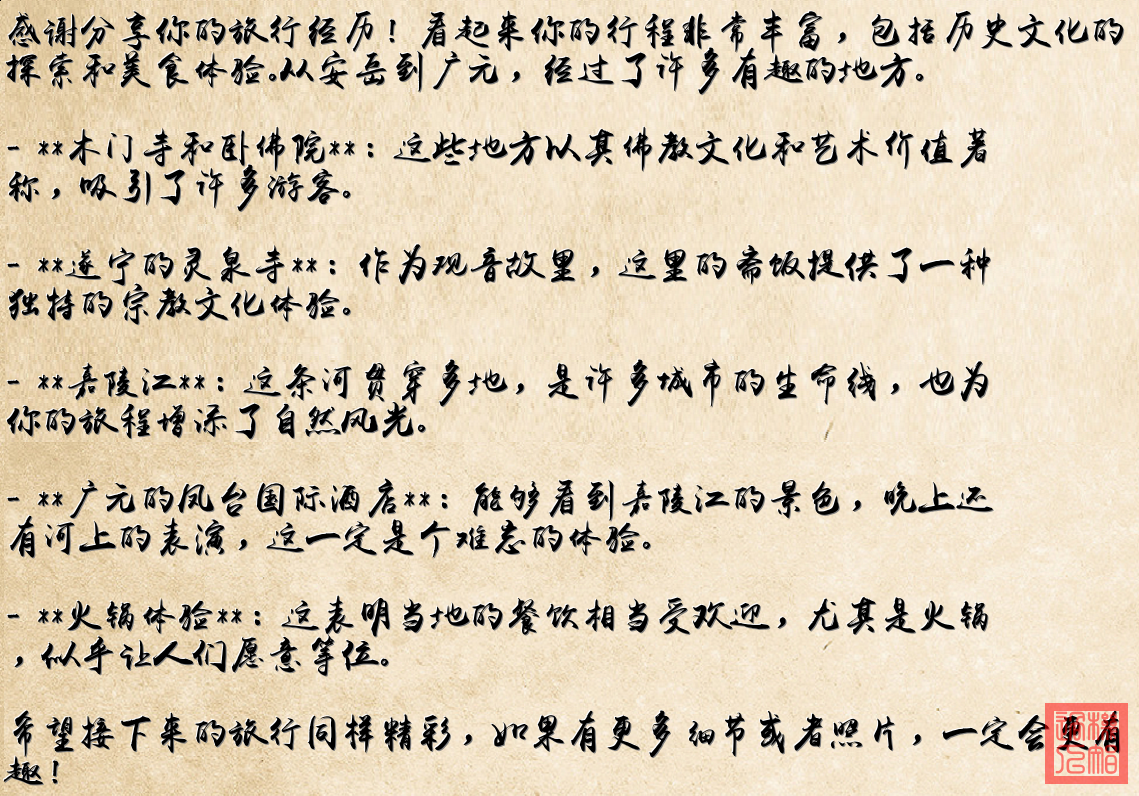 感谢分享你的旅行经历！看起来你的行程非常丰富，包括历史文化的
探索和美食体验。从安岳到广元，经过了许多有趣的地方。
- **木门寺和卧佛院**：这些地方以其佛教文化和艺术价值著
称，吸引了许多游客。
- **遂宁的灵泉寺**：作为观音故里，这里的斋饭提供了一种
独特的宗教文化体验。
- **嘉陵江**：这条河贯穿多地，是许多城市的生命线，也为
你的旅程增添了自然风光。
- **广元的凤台国际酒店**：能够看到嘉陵江的景色，晚上还
有河上的表演，这一定是个难忘的体验。
- **火锅体验**：这表明当地的餐饮相当受欢迎，尤其是火锅
，似乎让人们愿意等位。
希望接下来的旅行同样精彩，如果有更多细节或者照片，一定会更有
趣！